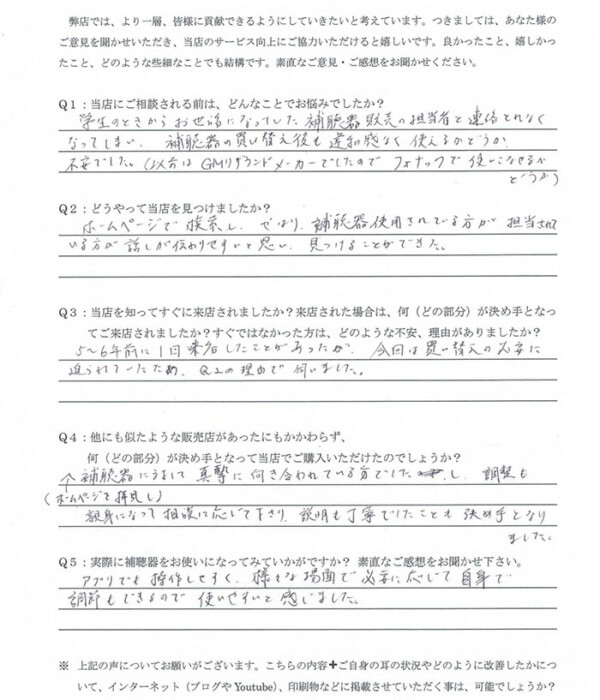 弊店では、より一層、皆様に貢献できるようにしていきたいと考えています。つきましては、あなた様の
ご意見を聞かせいただき、当店のサービス向上にご協力いただけると嬉しいです。良かったこと、嬉しかっ
たこと、どのような些細なことでも結構です。素直なご意見・ご感想をお聞かせください。
Q1：当店にご相談される前は、どんなことでお悩みでしたか？
学生のときからお世話になっていた補聴器販売の担当者と連絡とれなく
なってしまい、補聴器の買い替え後も違和感なく使えるかどうか
不安でした。（以前はGNリサウンドメーカーでしたので フォナックで使いこなせるか
どうか）
Q2：どうやって当店を見つけましたか？
ホームページで検索し、やはり、補聴器使用されている方が担当されて
いる方が話しが伝わりやすいと思い、見つけることができた。
Q3：当店を知ってすぐに来店されましたか？来店された場合は、何（どの部分）が決め手となっ
てご来店されましたか？すぐではなかった方は、どのような不安、理由がありましたか？
5〜6年前に1回来店したことがあったが、今回は買い替えの必要に
迫られていたため、Q2の理由で伺いました。
Q4：他にも似たような販売店があったにもかかわらず、
何（どの部分）が決め手となって当店でご購入いただけたのでしょうか？
補聴器にうまして真摯に向き合われている方でした し、調整も
（ホームページを拝見し）
親身になって相談に応じて下さり、説明も丁寧でしたことも決め手となり
ました。
Q5：実際に補聴器をお使いになってみていかがですか？ 素直なご感想をお聞かせ下さい。
アプリでも操作しやすく、様々な場面で必要に応じて自身で
調節もできるので使いやすいと感じました。
※ 上記の声についてお願いがございます。こちらの内容＋ご自身の耳の状況やどのように改善したかにつ
いて、インターネット（ブログやYoutube）、印刷物などに掲載させていただく事は、可能でしょうか？